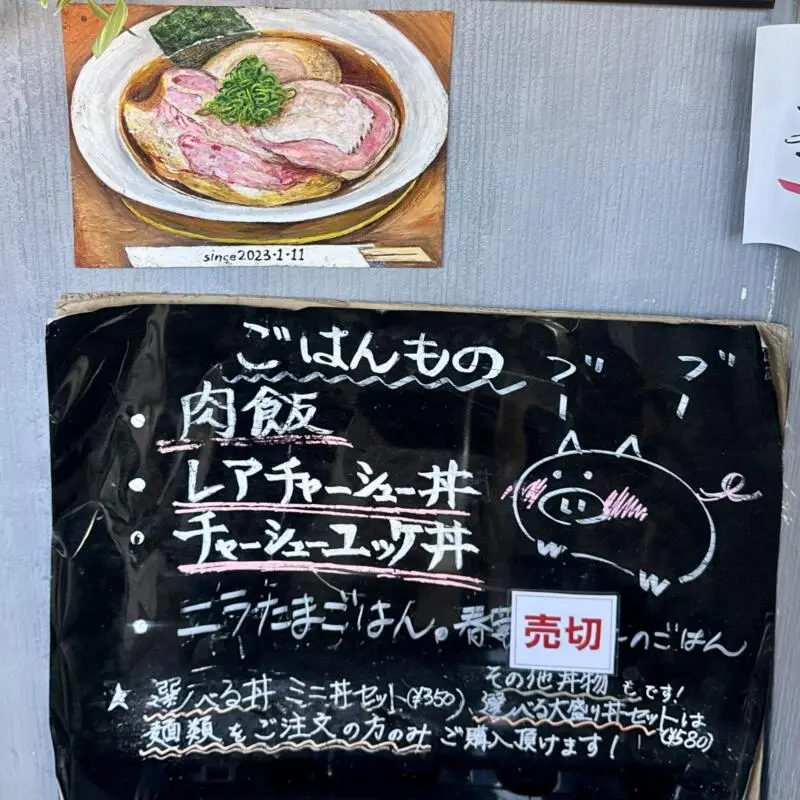 since2023·1·11
ごはんもの
ブー ブー
・肉飯
・レアチャーシュー丼
・チャーシューユッケ丼
・ニラたまごはん。春 売切 ーのごはん
その他丼物もです!
★選べる丼 ミニ丼セット(¥350)、選べる大盛り丼セットは(¥580)
麺類をご注文の方のみ ご購入頂けます!